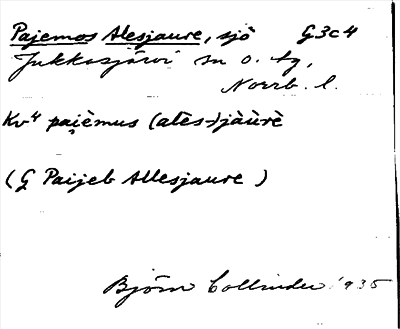 Pajemos Alesjaure, sjö G3c4
Jukkasjärvi sn o. tg,
Norrb. l.
Kv⁴ pai̯èmus (atès-)jàùrè
(G Paijeb Allesjaure)
Björn Collinder 1935